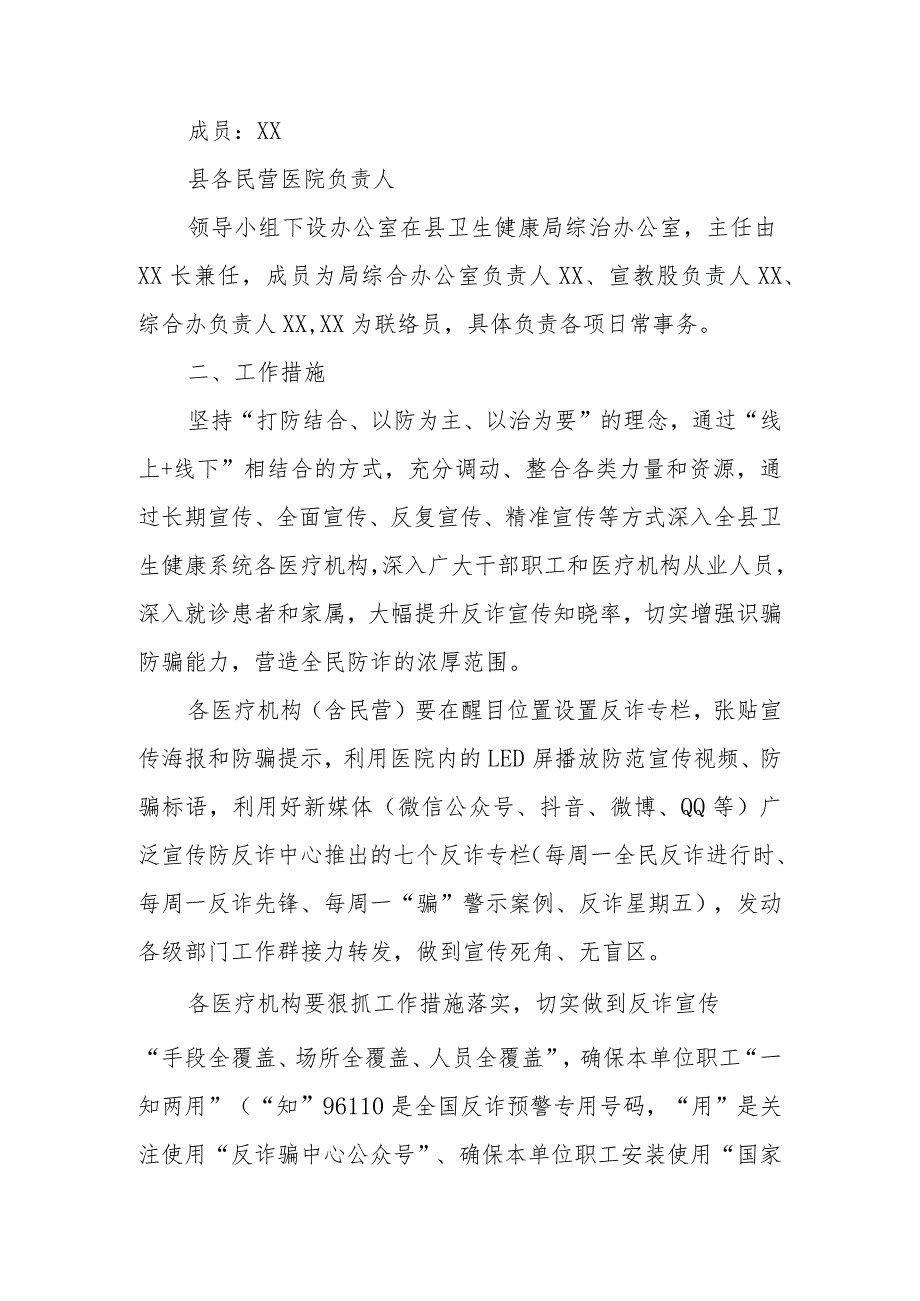 成员：XX
县各民营医院负责人
领导小组下设办公室在县卫生健康局综治办公室，主任由
XX 长兼任，成员为局综合办公室负责人 XX、宣教股负责人 XX、
综合办负责人 XX,XX 为联络员，具体负责各项日常事务。
二、工作措施
坚持“打防结合、以防为主、以治为要”的理念，通过“线
上+线下”相结合的方式，充分调动、整合各类力量和资源，通
过长期宣传、全面宣传、反复宣传、精准宣传等方式深入全县卫
生健康系统各医疗机构，深入广大干部职工和医疗机构从业人员，
深入就诊患者和家属，大幅提升反诈宣传知晓率，切实增强识骗
防骗能力，营造全民防诈的浓厚范围。
各医疗机构（含民营）要在醒目位置设置反诈专栏，张贴宣
传海报和防骗提示，利用医院内的 LED 屏播放防范宣传视频、防
骗标语，利用好新媒体（微信公众号、抖音、微博、QQ 等）广
泛宣传防反诈中心推出的七个反诈专栏（每周一全民反诈进行时、
每周一反诈先锋、每周一“骗”警示案例、反诈星期五），发动
各级部门工作群接力转发，做到宣传死角、无盲区。
各医疗机构要狠抓工作措施落实，切实做到反诈宣传
“手段全覆盖、场所全覆盖、人员全覆盖”，确保本单位职工“一
知两用”（“知”96110 是全国反诈预警专用号码，“用”是关
注使用“反诈骗中心公众号”、确保本单位职工安装使用“国家